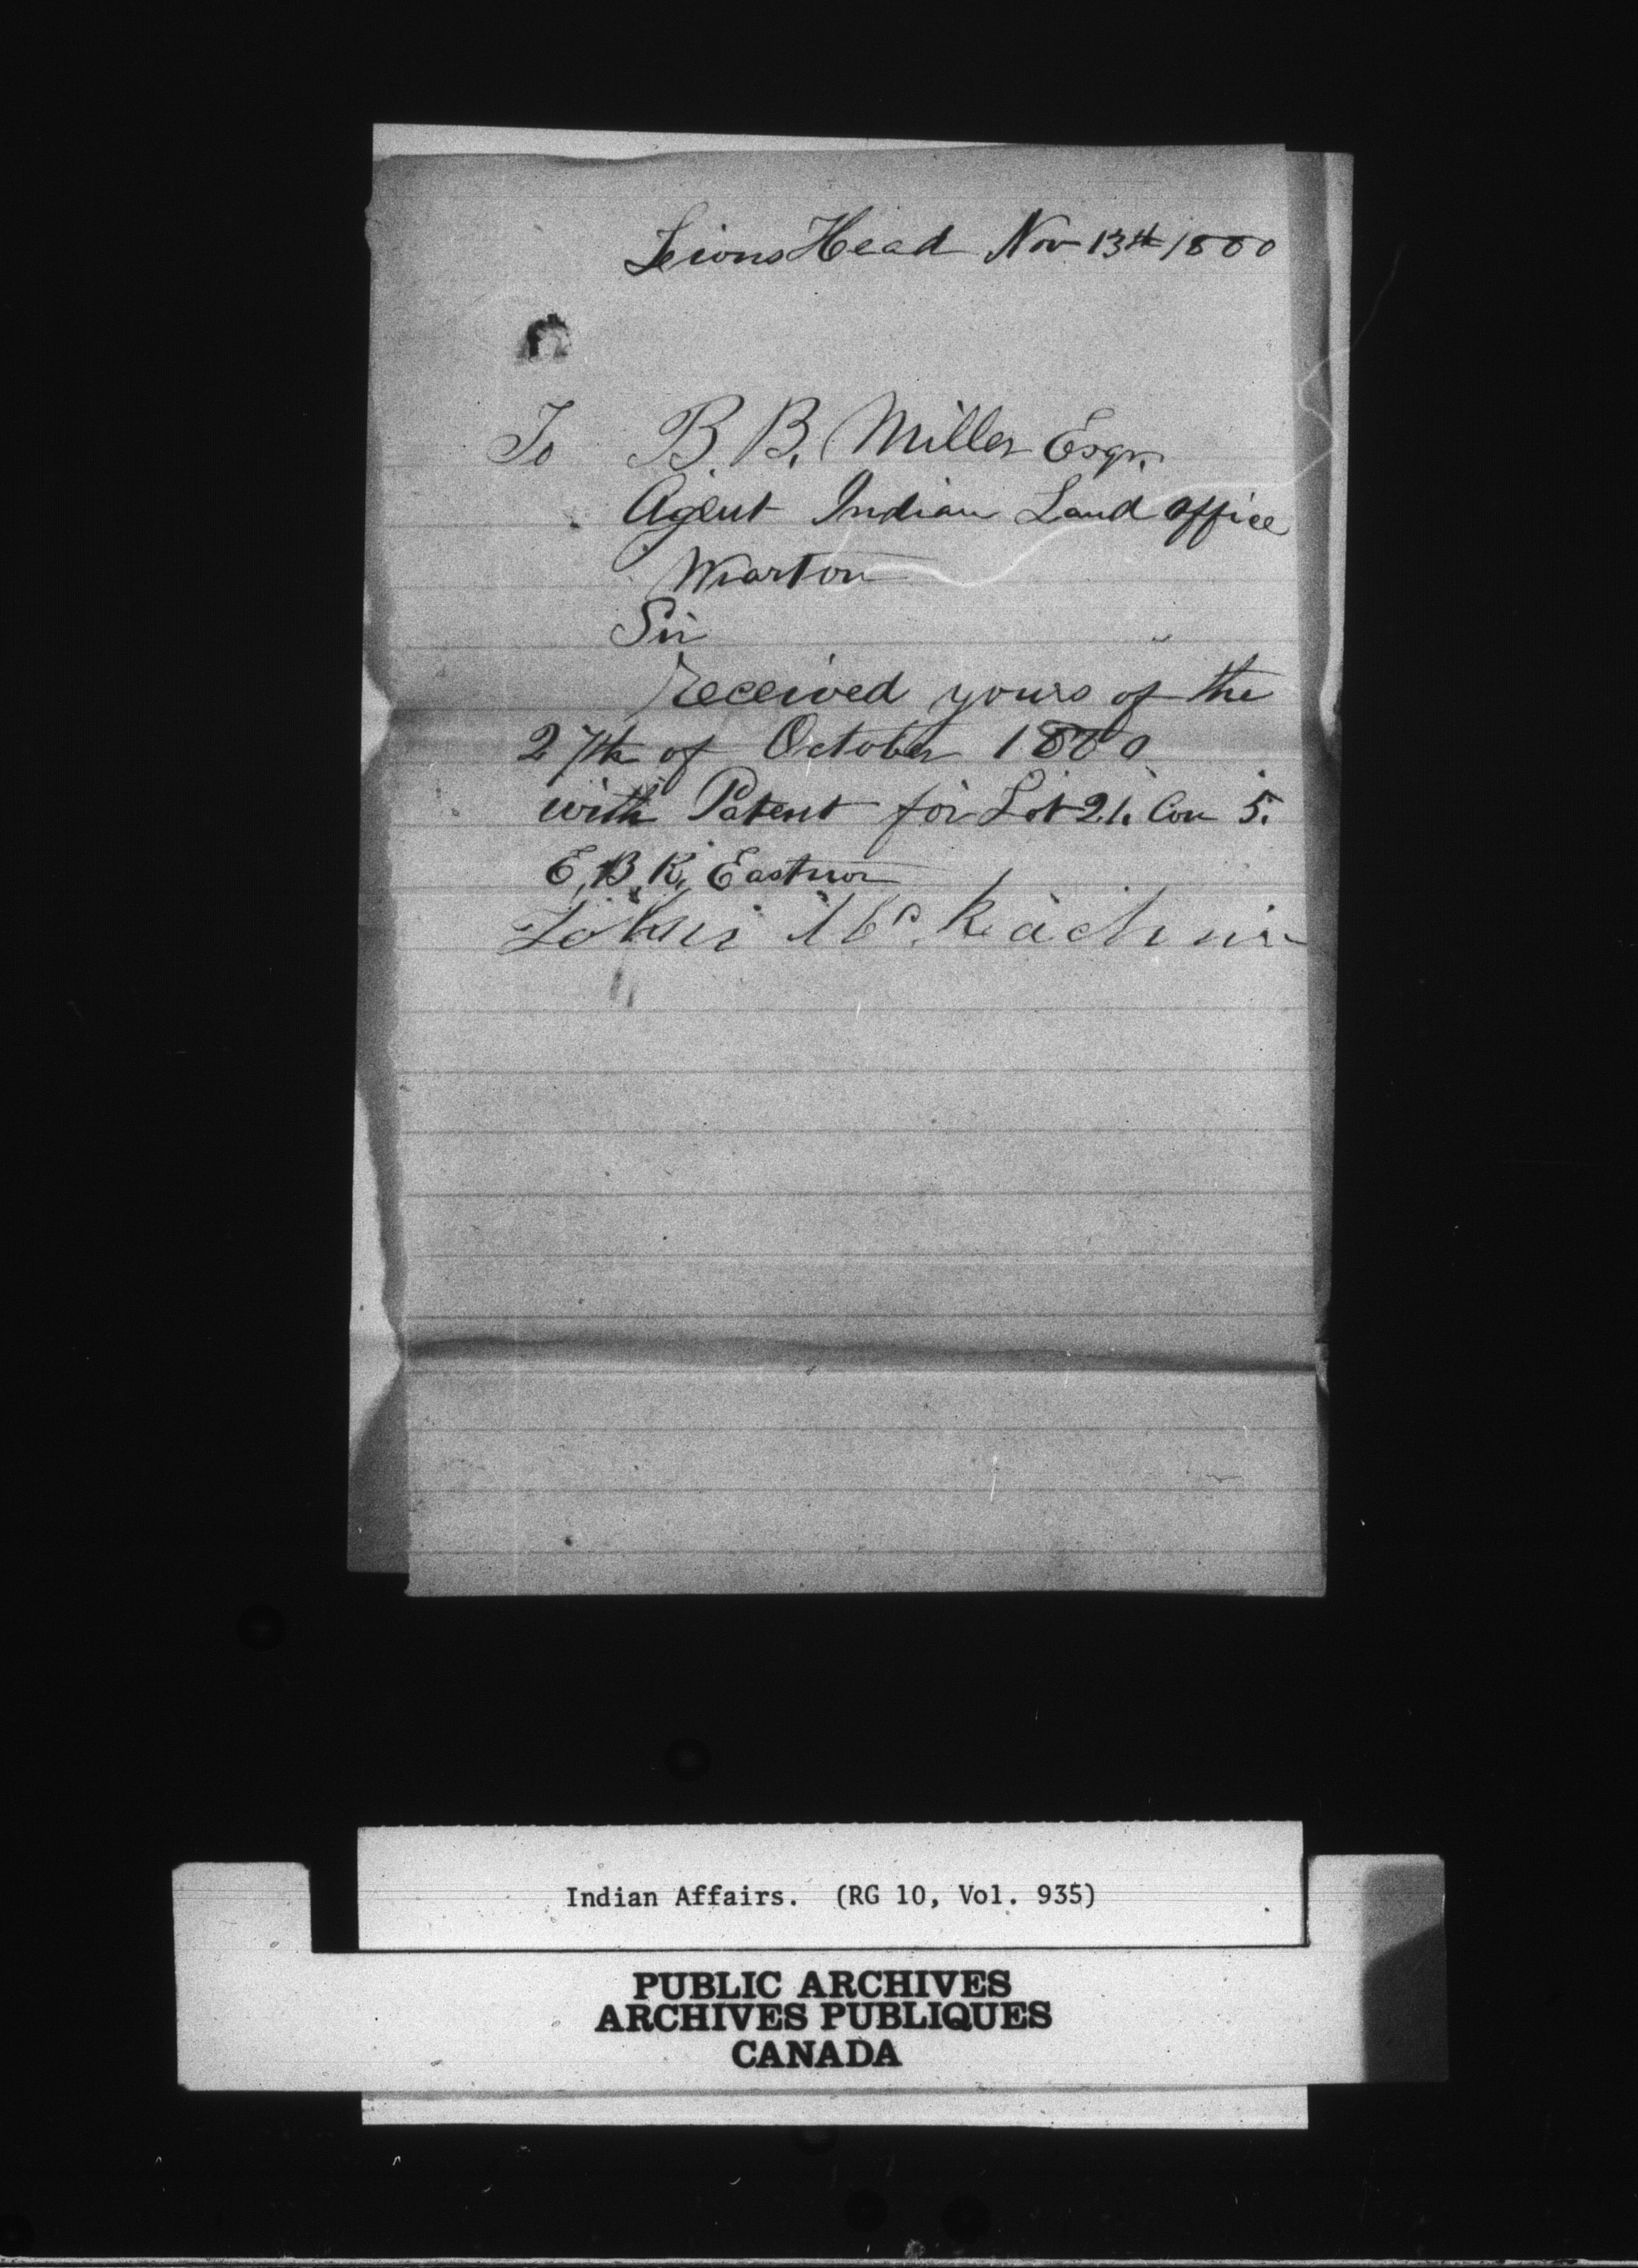 Lions Head Nov 13th 1880
To B. B. Miller Esqr.
Agent Indian Land office
Wiarton
Sir
Received yours of the
27th of October 1880
with Patent for Lot 21. Con 5.
E, B, R, Eastnor
Indian Affairs. (RG 10, Vol. 935)
PUBLIC ARCHIVES
ARCHIVES PUBLIQUES
CANADA